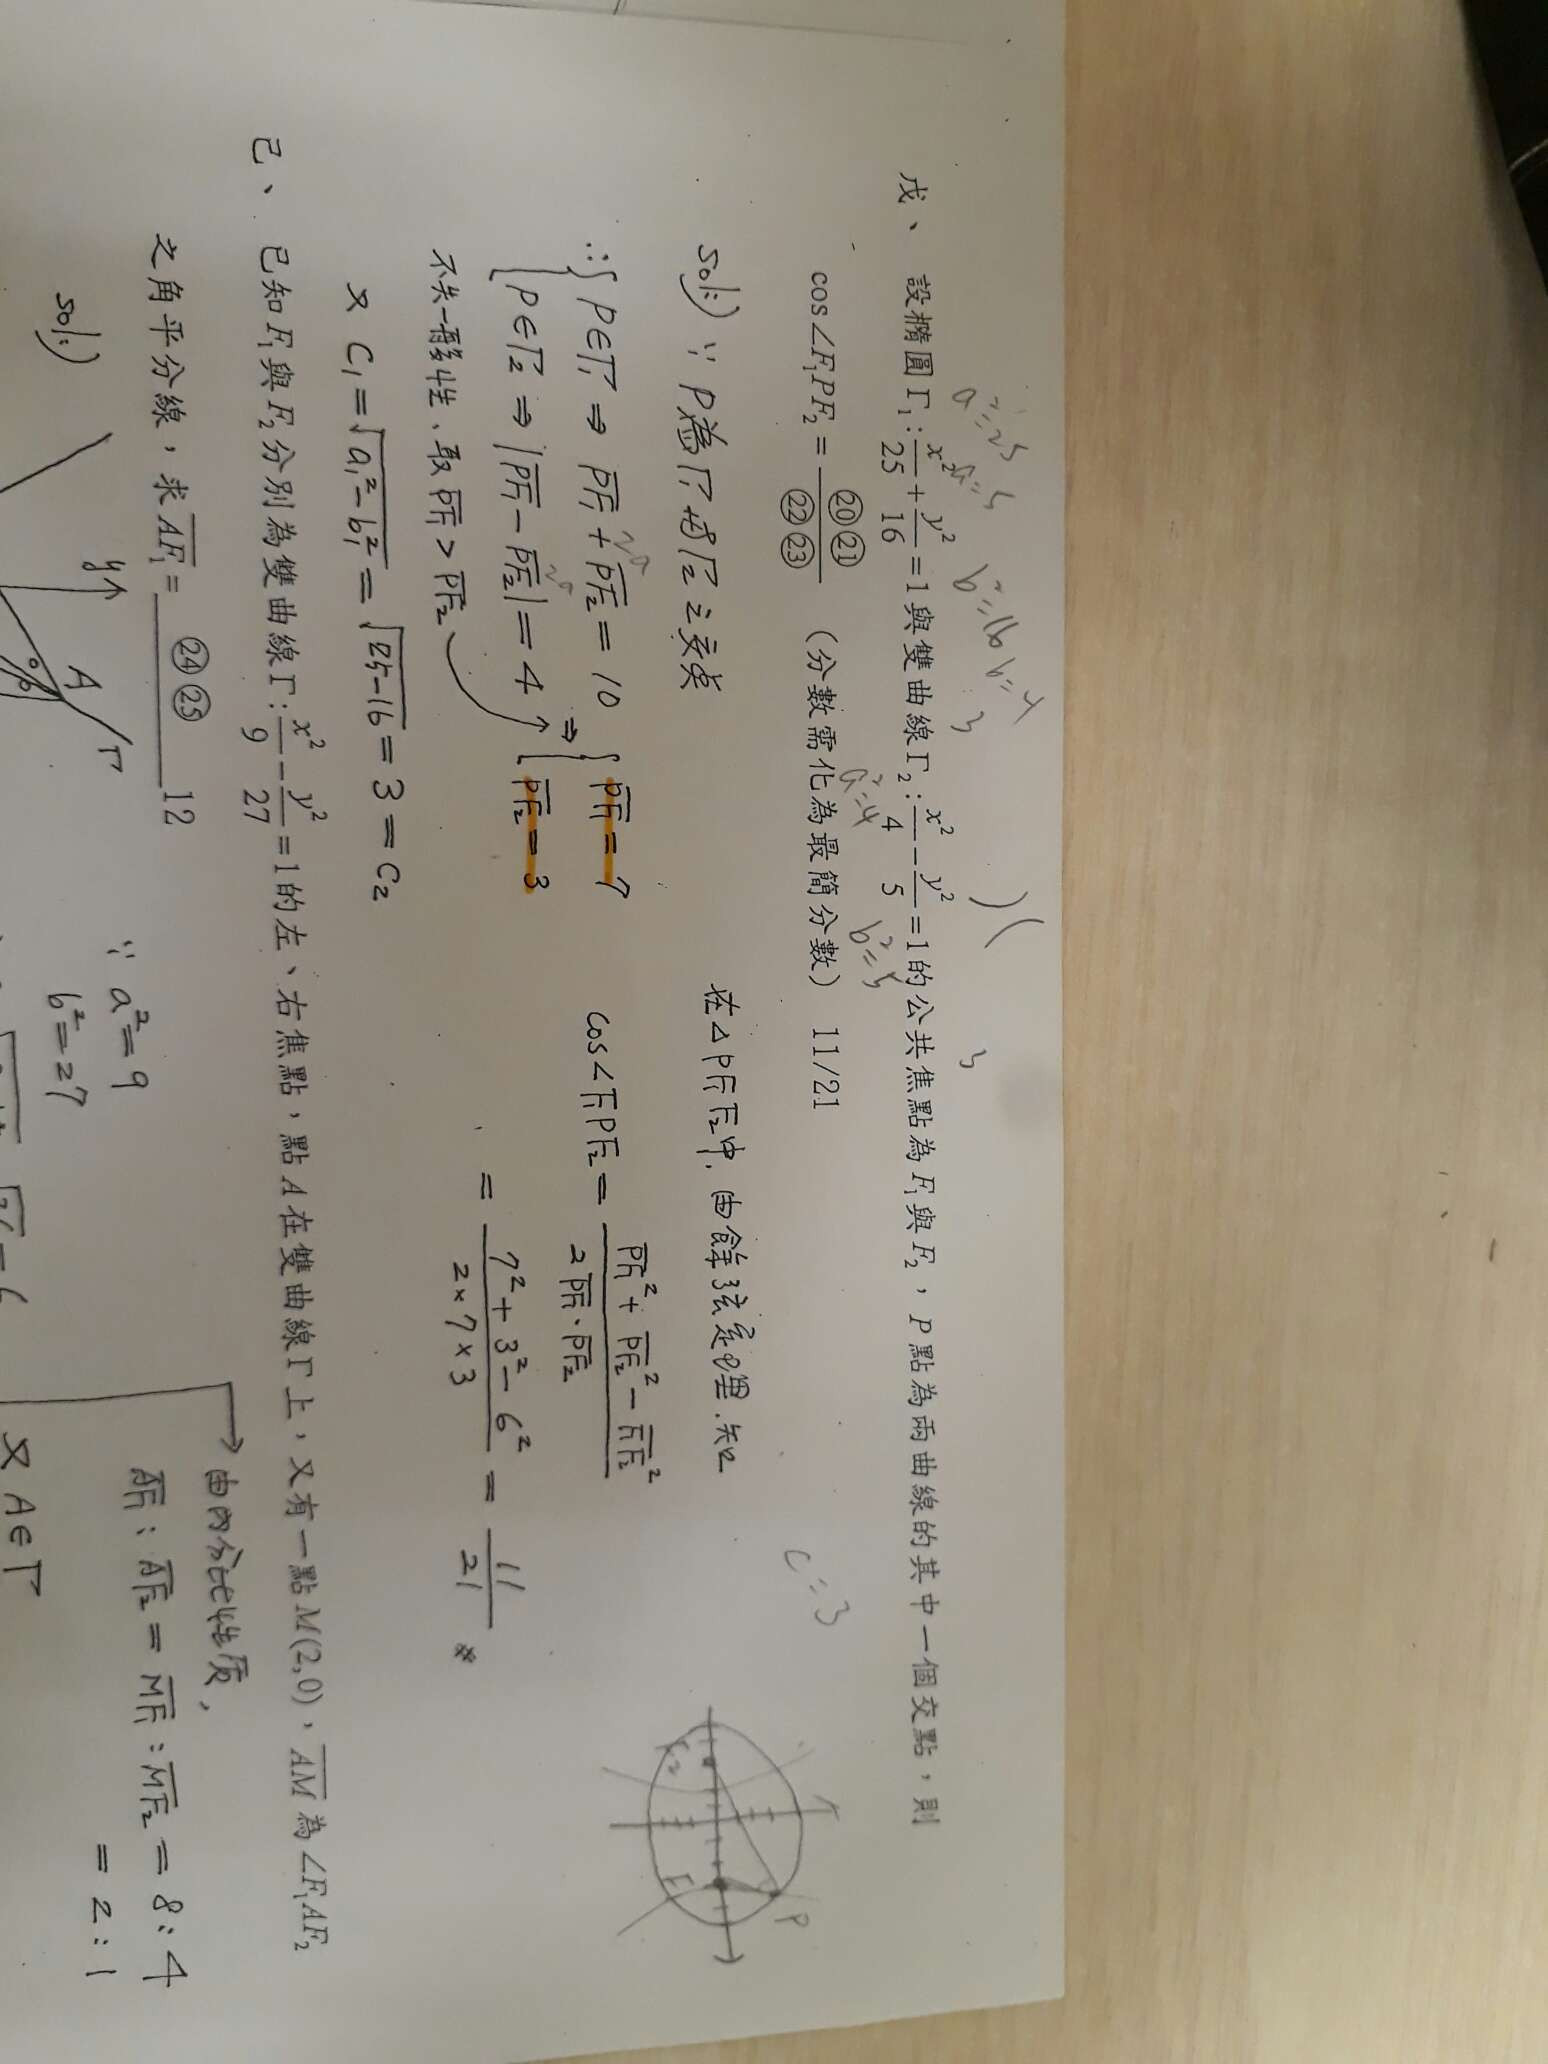 a²=25 a=5 b²=16 b=4 3 3
戊、 設橢圓Γ₁: x²/25 + y²/16 = 1與雙曲線Γ₂: x²/4 − y²/5 = 1的公共焦點為F₁與F₂，P點為兩曲線的其中一個交點，則
a²=4 b²=5
cos∠F₁PF₂ = ⑳㉑/㉒㉓ （分數需化為最簡分數） 11/21
c=3
sol:) ∵ P為Γ₁與Γ₂之交點
∴{ P∈Γ₁ ⇒ PF₁ + PF₂ = 10 ⇒ { PF₁ = 7
2a
P∈Γ₂ ⇒ |PF₁ − PF₂| = 4 PF₂ = 3
2a
不失一般性，取PF₁ > PF₂
又 C₁ = √(a₁²−b₁²) = √(25−16) = 3 = C₂
在△PF₁F₂中，由餘弦定理，知
cos∠F₁PF₂ = (PF₁² + PF₂² − F₁F₂²)/(2PF₁·PF₂)
= (7² + 3² − 6²)/(2×7×3) = 11/21 *
F₂ F₁ P
己、 已知F₁與F₂分別為雙曲線Γ: x²/9 − y²/27 = 1的左、右焦點，點A在雙曲線Γ上，又有一點M(2,0)，AM為∠F₁AF₂
之角平分線，求AF₁ = ㉔㉕ 12
sol:)
y
A Γ
∵ a²=9
b²=27
由內分比性質，
AF₁ : AF₂ = MF₁ : MF₂ = 8 : 4
= 2 : 1
又 A∈Γ